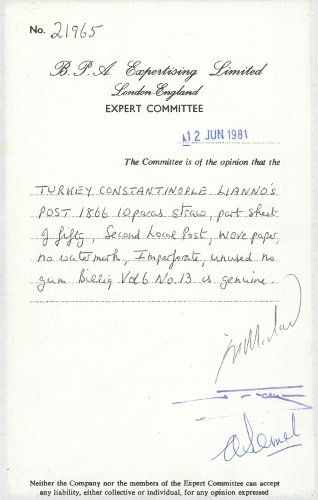 No. 21965
B.P.A. Expertising Limited
London-England
EXPERT COMMITTEE
12 JUN 1981
The Committee is of the opinion that the
TURKEY CONSTANTINOPLE LIANNO'S
POST 1866 10 paras straw, part sheet
of fifty, Second Local Post, wove paper,
no watermark, Imperforate, unused no
gum Billig Vol.6 No.13 is genuine.
Neither the Company nor the members of the Expert Committee can accept
any liability, either collective or individual, for any opinion expressed